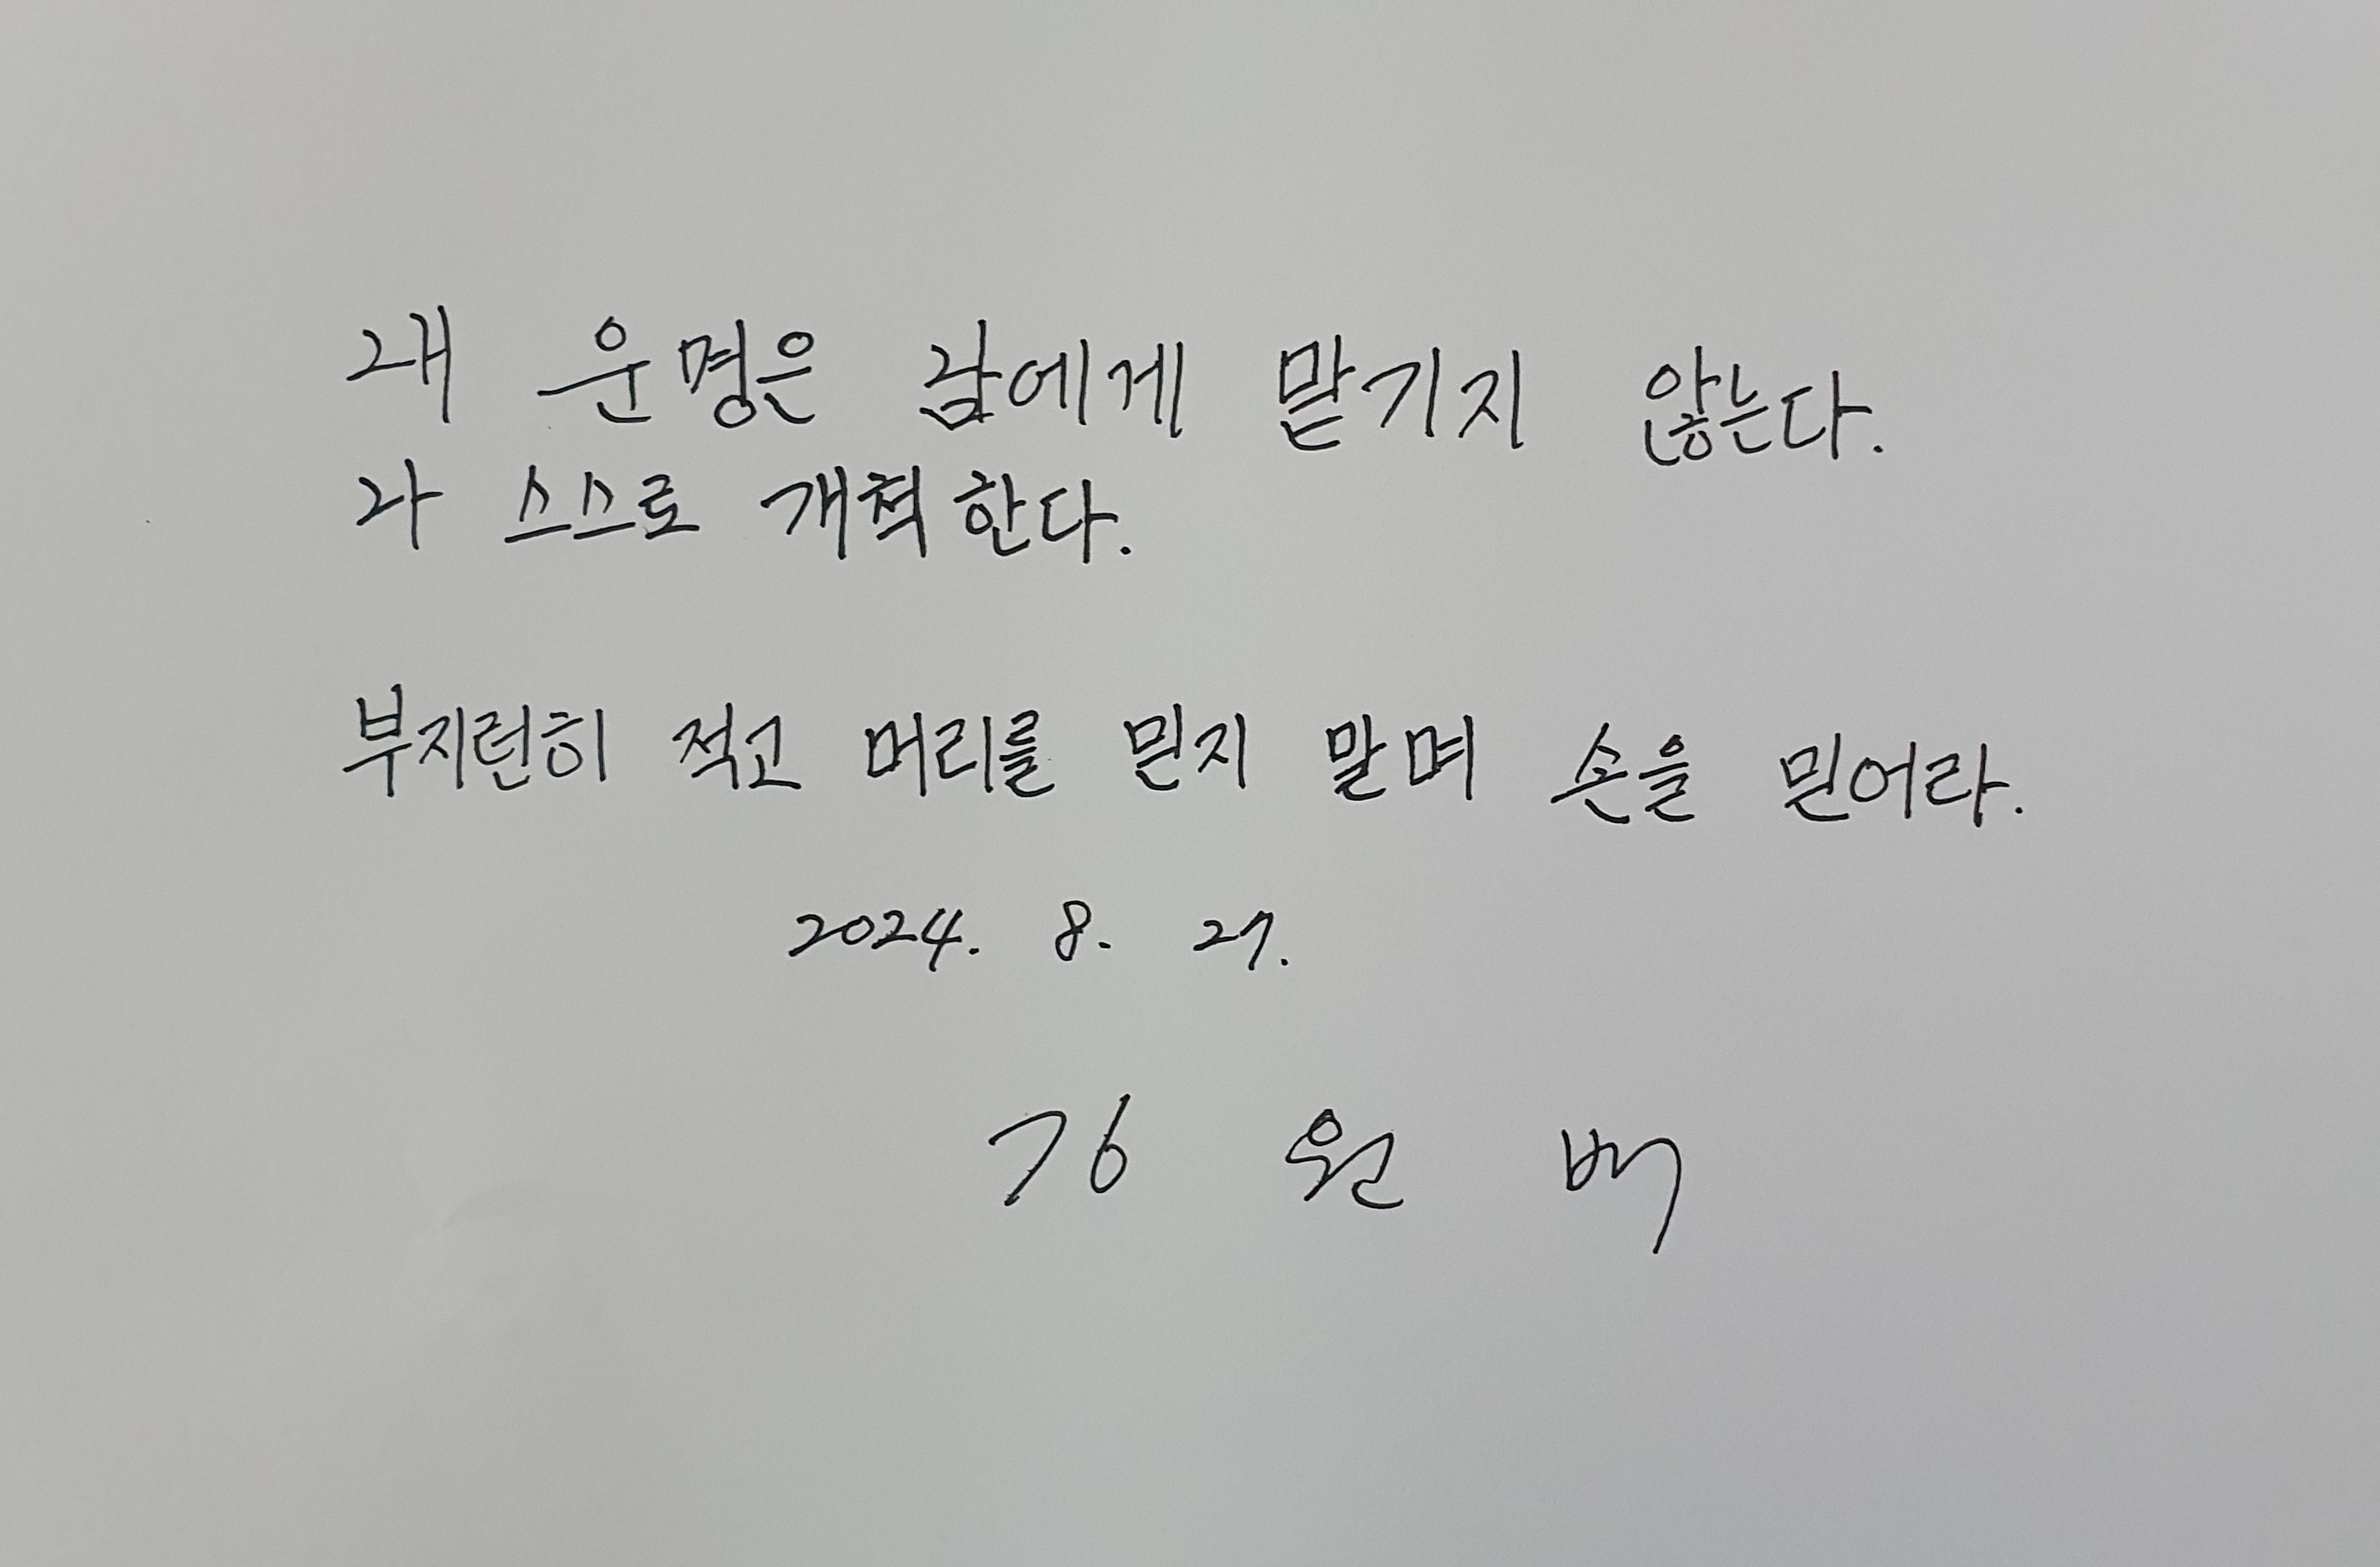 내 운명은 남에게 맡기지 않는다.
나 스스로 개척한다.
부지런히 적고 머리를 믿지 말며 손을 믿어라.
2024. 8. 27.
김 원 배